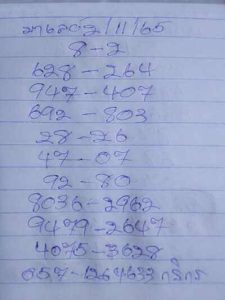 มาเลย์ 2/11/65
8-2
628-264
947-407
692-803
28-26
47-07
92-80
8036-2962
9479-2647
4075-3628
657-1264633